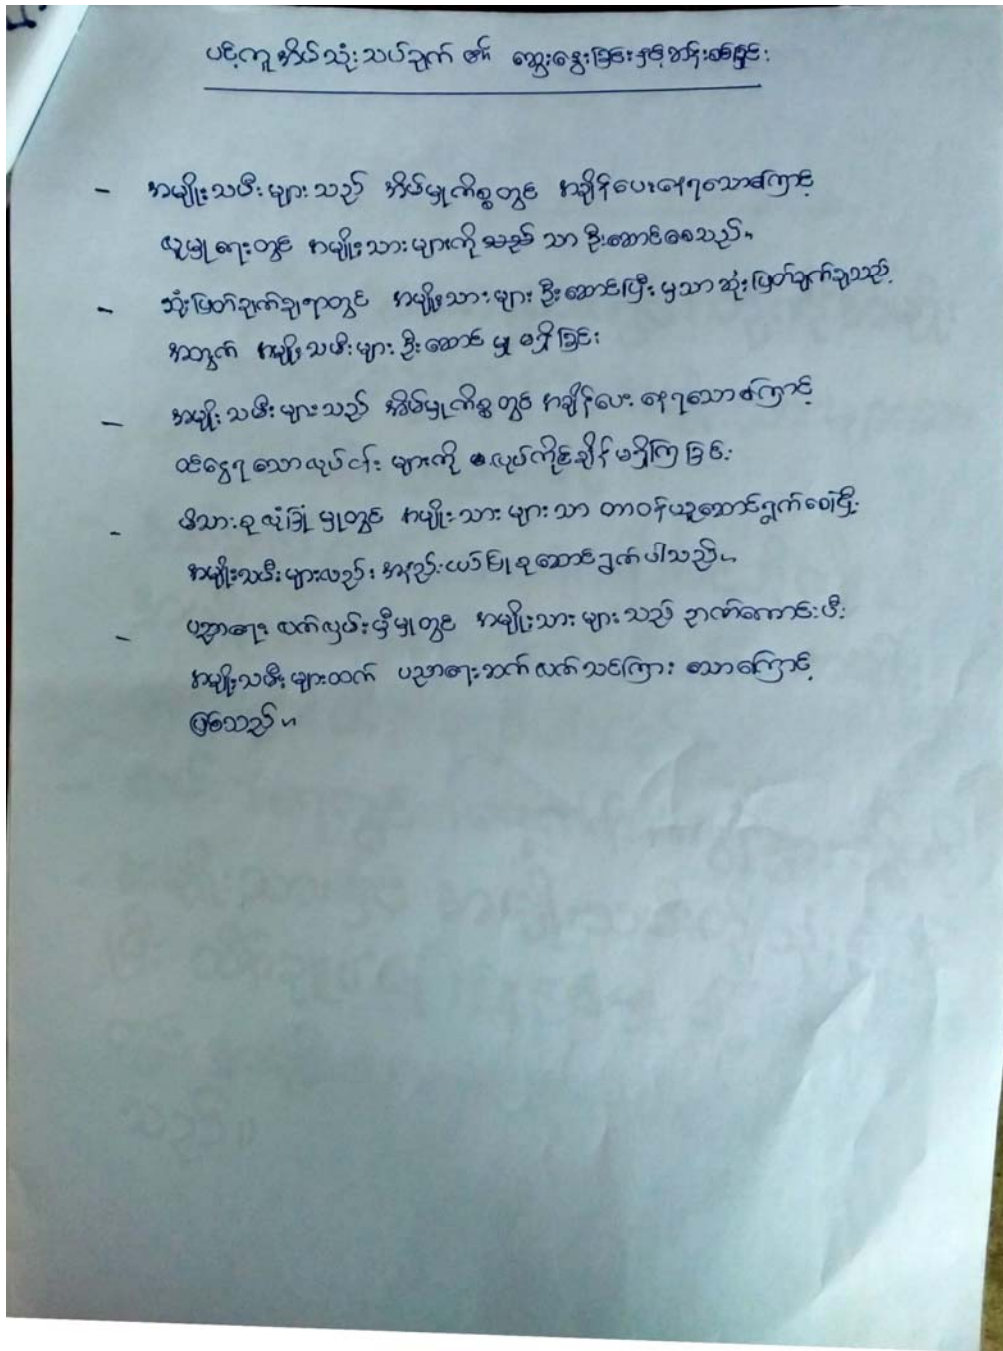 ပင့်ကူအိမ်သုံးသပ်ချက် ၏ ဆွေးနွေးခြင်းနှင့်
- အမျိုးသမီးများသည် အိမ်မှုကိစ္စတွင် အချိန်ပေးနေရသောကြောင့်
လူမှုရေးတွင် အမျိုးသားများကိုသည် သာ ဦးဆောင်စေသည်။
- ဆုံးဖြတ်ချက်ချရာတွင် အမျိုးသားများ ဦးဆောင်ပြီးမှသာ ဆုံးဖြတ်ချက်ချသည့်
အတွက် အမျိုးသမီးများ ဦးဆောင်မှု မရှိခြင်း
- အမျိုးသမီးများသည် အိမ်မှုကိစ္စတွင် အချိန်ပေးနေရသောကြောင့်
ဝင်ငွေရသောလုပ်ငန်းများကို လုပ်ကိုင်ချိန်မရှိကြခြင်း
- မိသားစုလုံခြုံမှုတွင် အမျိုးသားများသာ တာဝန်ယူဆောင်ရွက်စေပြီး
အမျိုးသမီးများလည်း အနည်းငယ်ပြုစုဆောင်ရွက်ပါသည်။
- ပညာရေး လက်လှမ်းမှီမှုတွင် အမျိုးသားများသည် ဉာဏ်ကောင်းပြီး
အမျိုးသမီးများထက် ပညာရေးဆက်လက်သင်ကြားသောကြောင့်
ဖြစ်သည်။